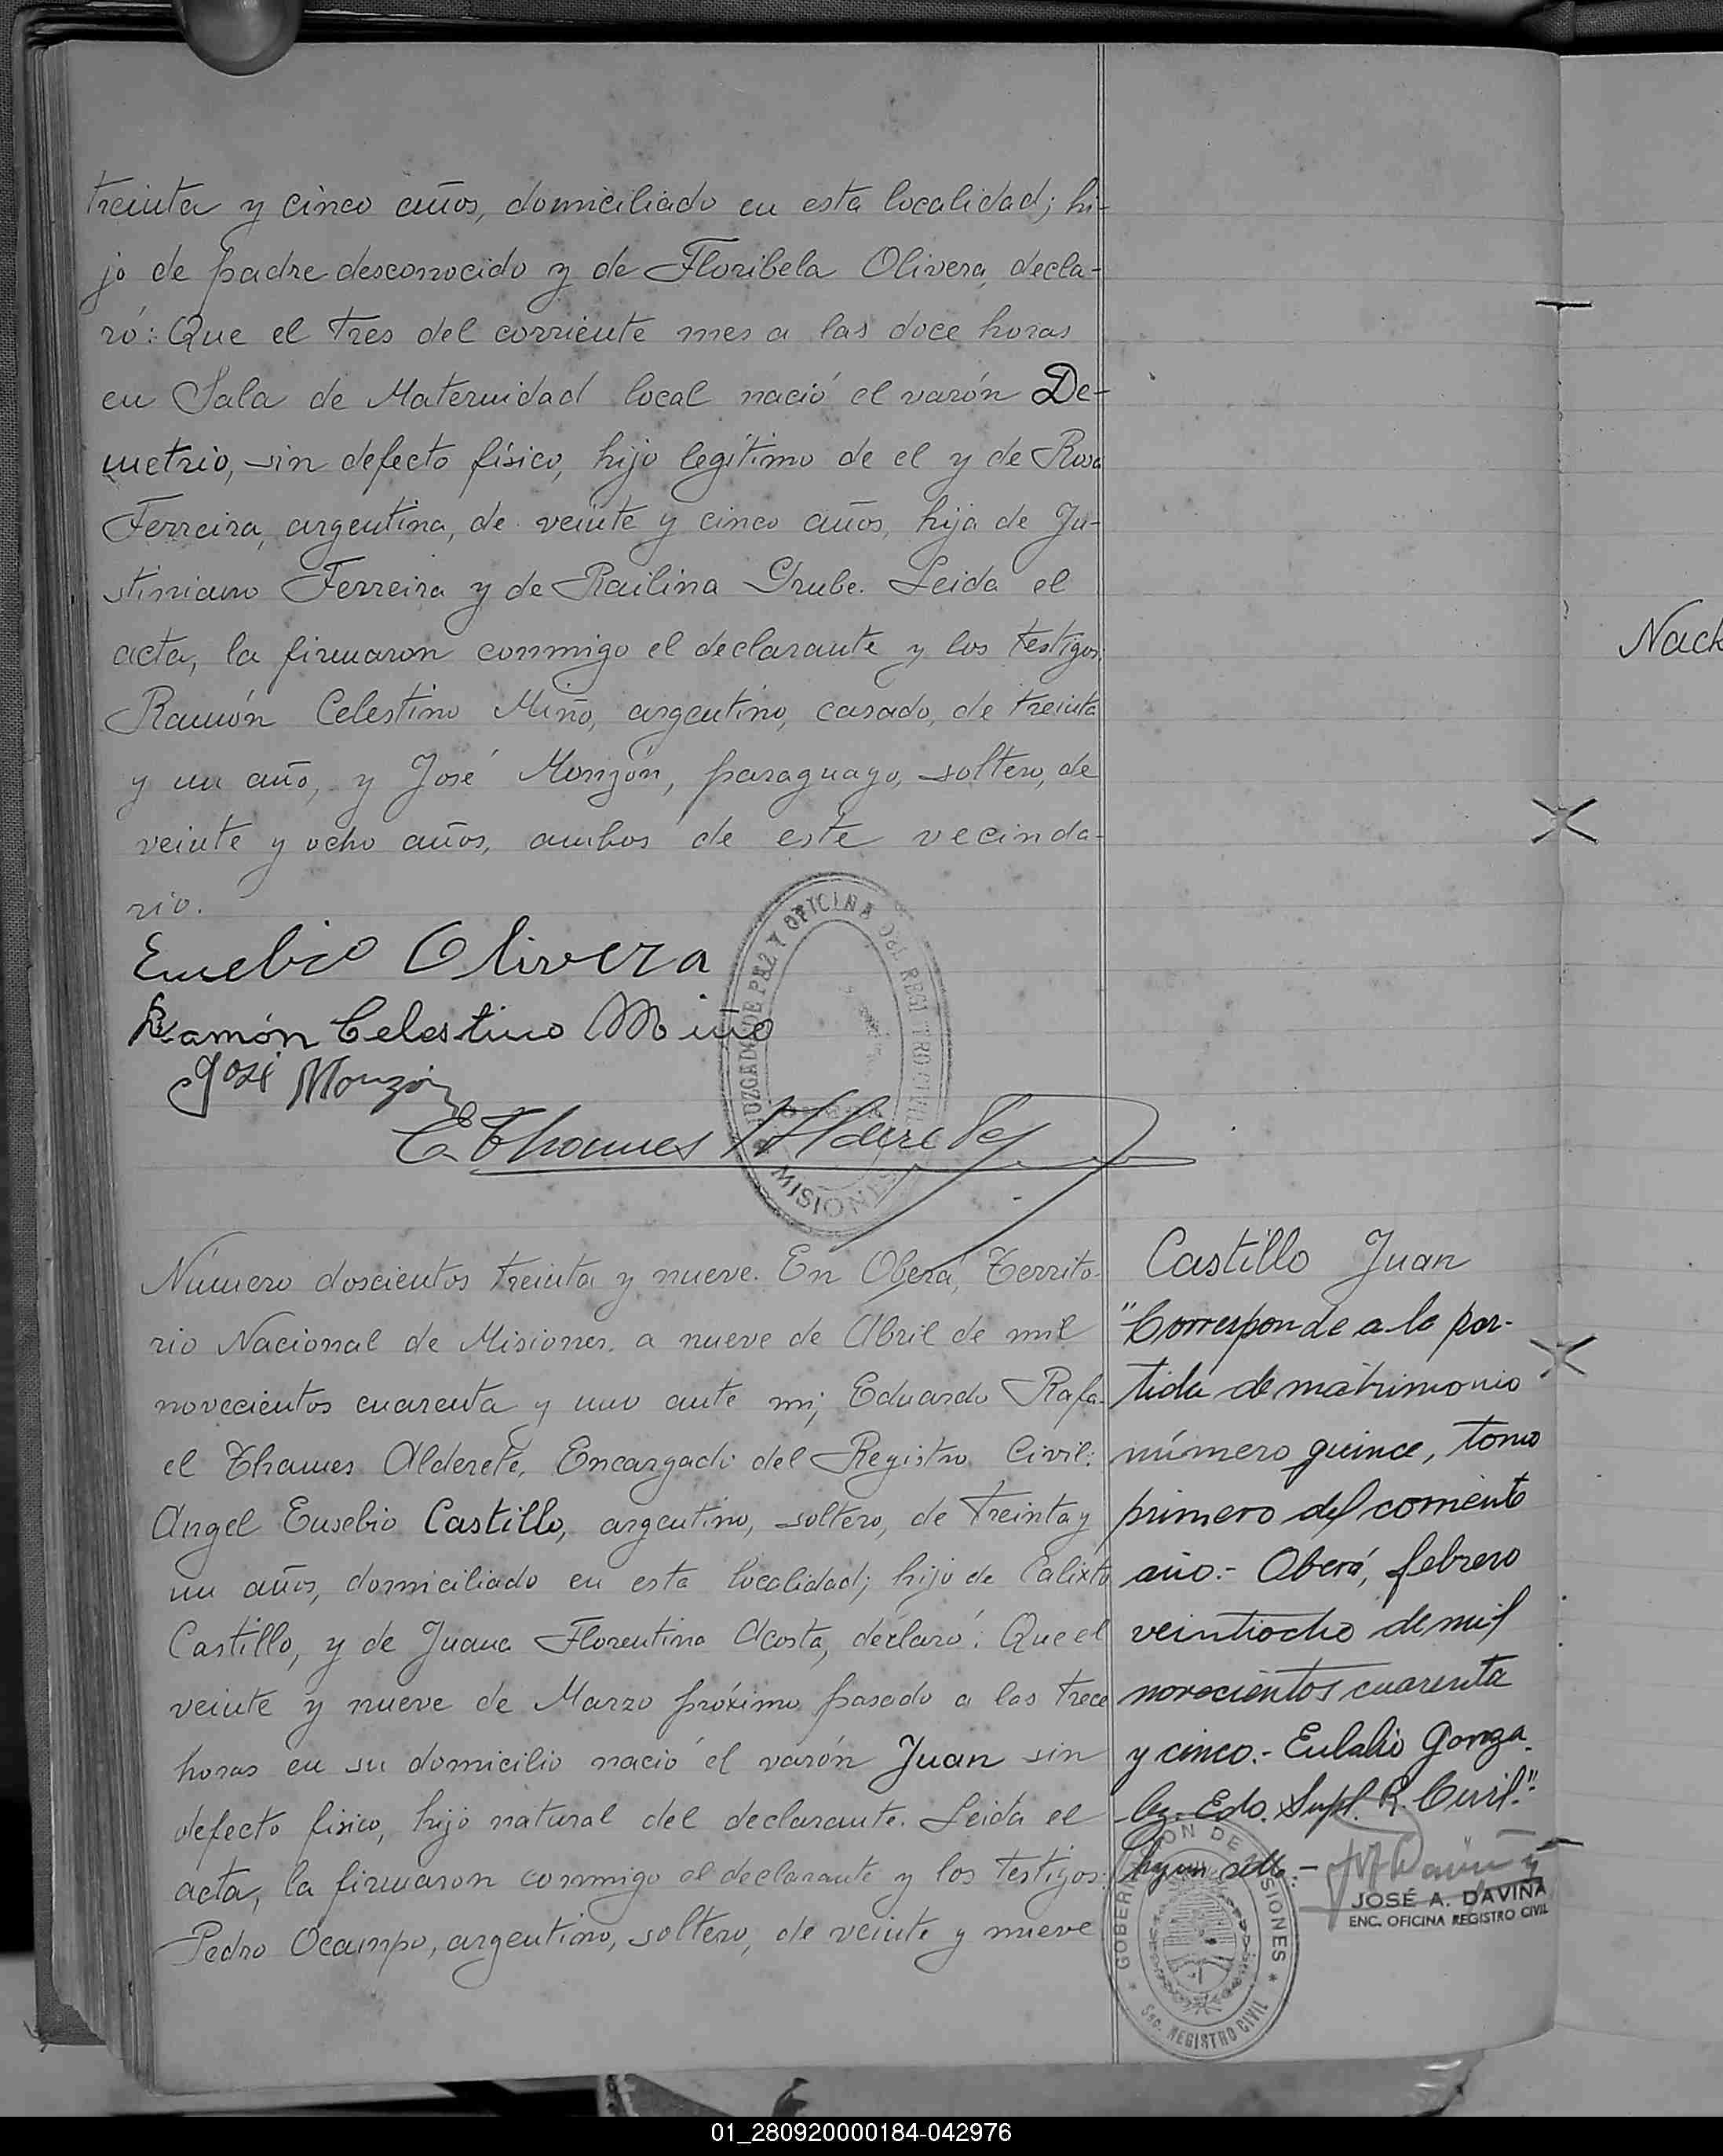 treinta y cinco años, domiciliado en esta localidad; hi-
jo de padre desconocido y de Floribela Olivera, decla-
ró: Que el tres del corriente mes a las doce horas
en Sala de Maternidad local nació el varón De-
metrio, sin defecto físico, hijo legítimo de el y de Rosa
Ferreira, argentina, de veinte y cinco años, hija de Ju-
stiniano Ferreira y de Railina Grube. Leida el
acta, la firmaron conmigo el declarante y los testigos:
Ramón Celestino Miño, argentino, casado, de treinta
y un año, y José Monzón, paraguayo, soltero, de
veinte y ocho años, ambos de este vecinda-
rio.
Eusebio Olivera
Ramón Celestino Miño
José Monzón
E. Thames Alderete
JUZGADO DE PAZ Y OFICINA DEL REGISTRO CIVIL
MISIONES
Número doscientos treinta y nueve. En Oberá, Territo-
rio Nacional de Misiones, a nueve de Abril de mil
novecientos cuarenta y uno ante mi; Eduardo Rafa-
el Thames Alderete, Encargado del Registro Civil:
Angel Eusebio Castillo, argentino, soltero, de treinta y
un años, domiciliado en esta localidad; hijo de Calixto
Castillo, y de Juana Florentina Acosta, declaró: Que el
veinte y nueve de Marzo próximo pasado a las trece
horas en su domicilio nació el varón Juan sin
defecto físico, hijo natural del declarante. Leida el
acta, la firmaron conmigo el declarante y los testigos:
Pedro Ocampo, argentino, soltero, de veinte y nueve
Castillo Juan
"Corresponde a la par-
tida de matrimonio
número quince, tomo
primero del corriente
año.- Oberá, febrero
veintiocho de mil
novecientos cuarenta
y cinco.- Eulalio Gonza-
lez. Edo. Supl. R. Civil."
hay un sello.-
JOSÉ A. DAVIÑA
ENC. OFICINA REGISTRO CIVIL
GOBERNACION DE MISIONES
Sec. REGISTRO CIVIL
Nack
01_280920000184-042976